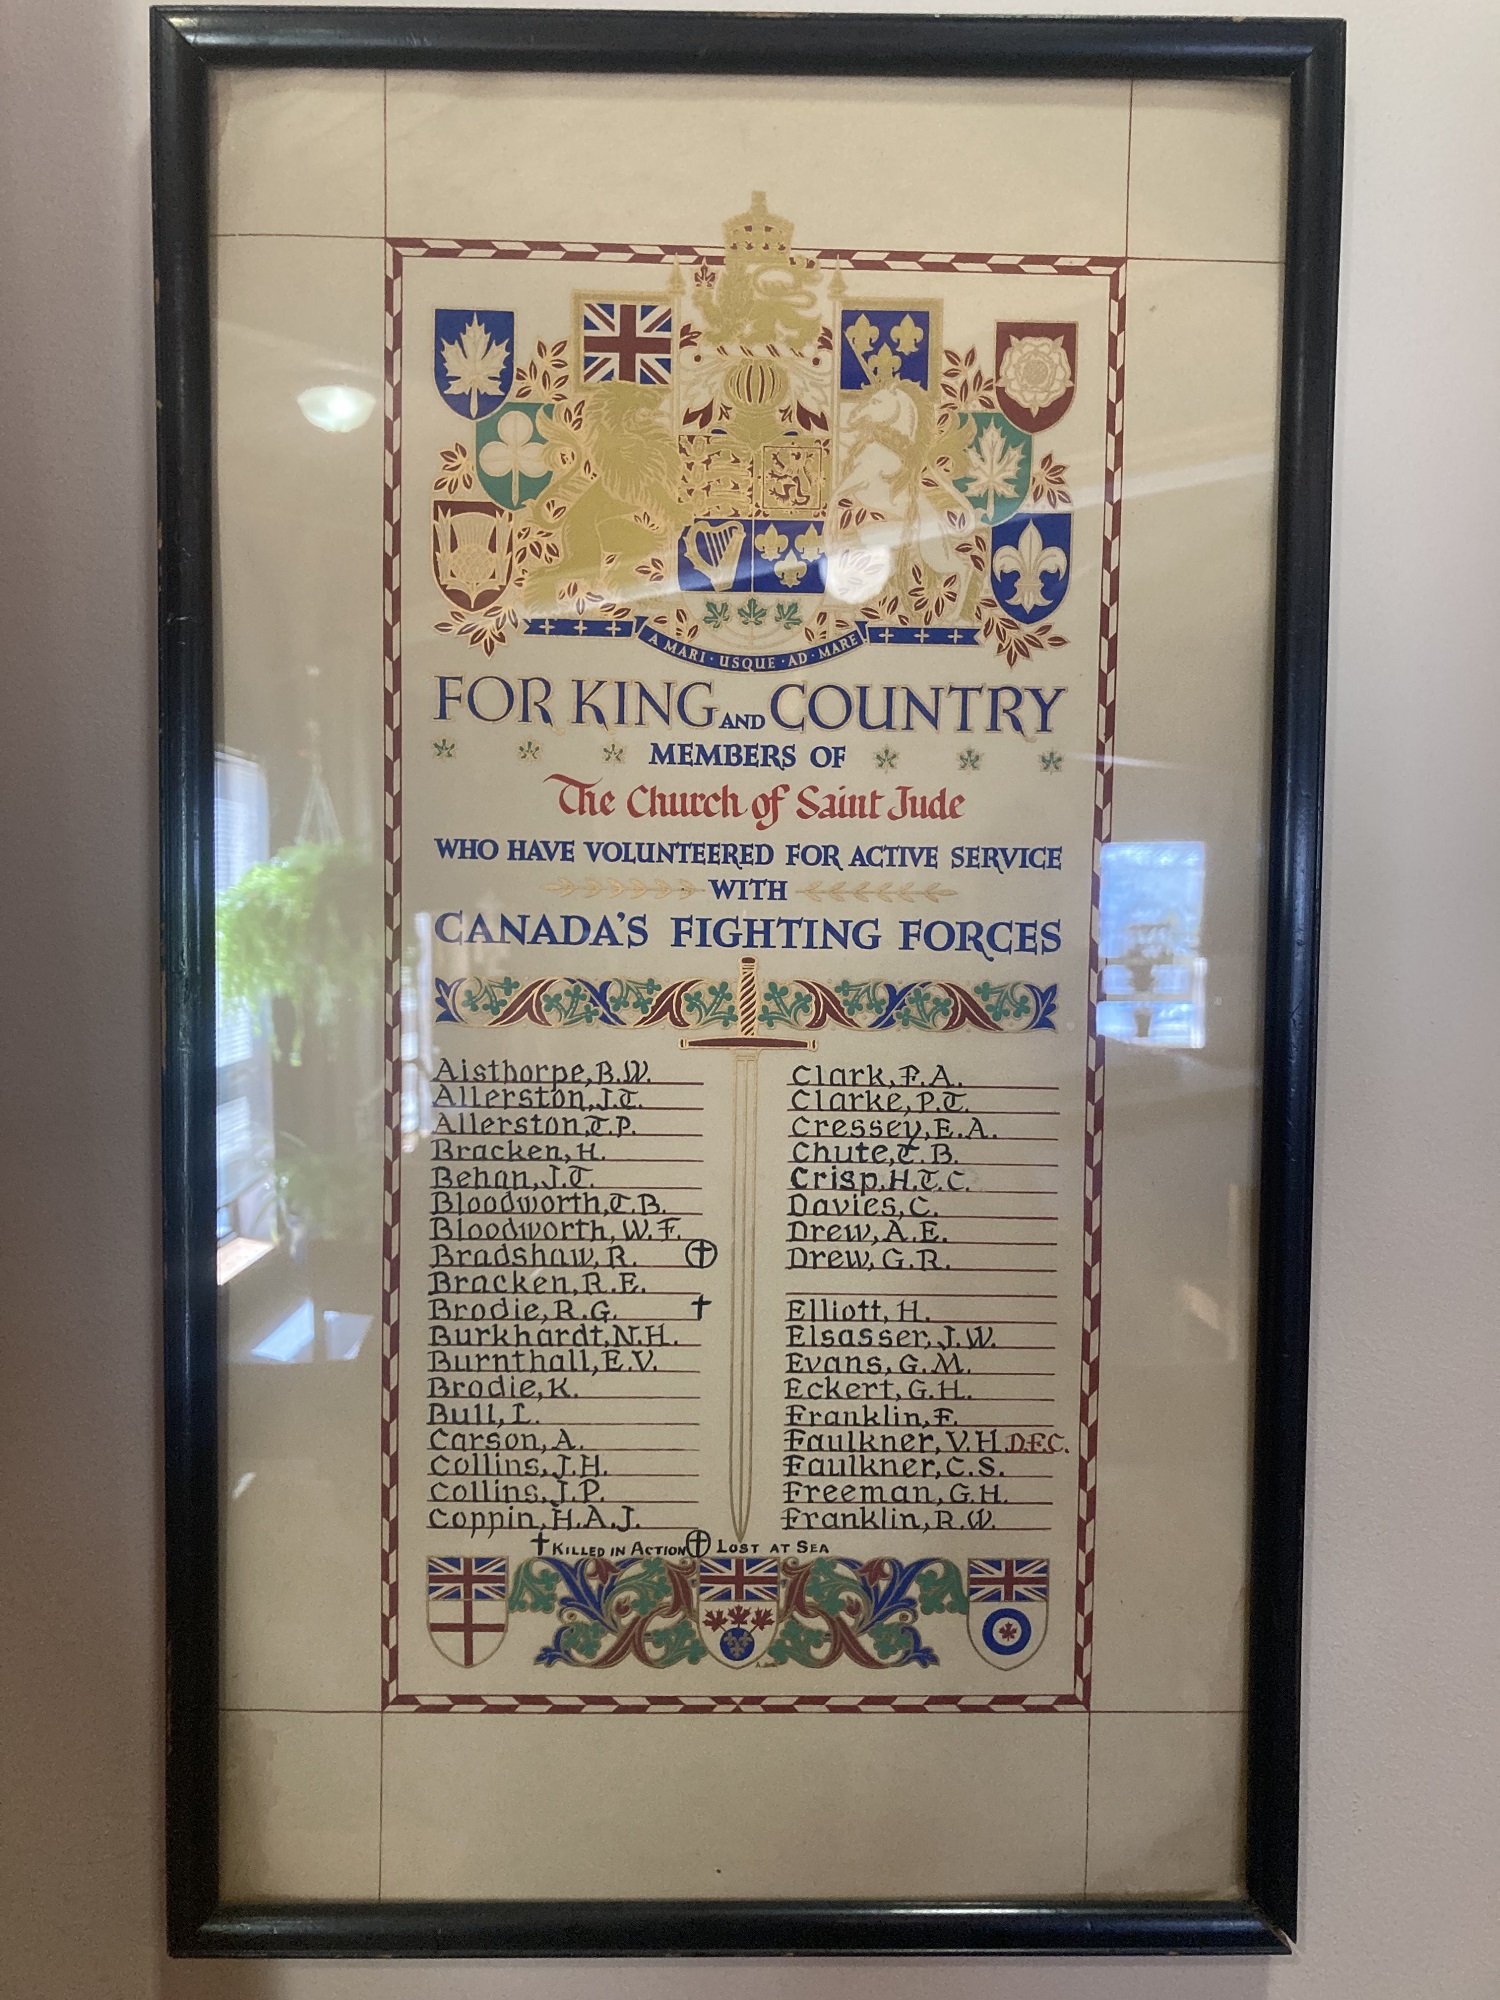 A MARI · USQUE · AD · MARE
FOR KING AND COUNTRY
MEMBERS OF
The Church of Saint Jude
WHO HAVE VOLUNTEERED FOR ACTIVE SERVICE
WITH
CANADA'S FIGHTING FORCES
Aisthorpe, B.W.
Allerston, J.T.
Allerston, T.P.
Bracken, H.
Behan, J.T.
Bloodworth, T.B.
Bloodworth, W.F.
Bradshaw, R.
Bracken, R.E.
Brodie, R.G. †
Burkhardt, N.H.
Burnthall, E.V.
Brodie, K.
Bull, L.
Carson, A.
Collins, J.H.
Collins, J.P.
Coppin, H.A.J.
Clark, F.A.
Clarke, P.T.
Cressey, E.A.
Chute, T.B.
Crisp, H.T.C.
Davies, C.
Drew, A.E.
Drew, G.R.
Elliott, H.
Elsasser, J.W.
Evans, G.M.
Eckert, G.H.
Franklin, F.
Faulkner, V.H. D.F.C.
Faulkner, C.S.
Freeman, G.H.
Franklin, R.W.
† KILLED IN ACTION LOST AT SEA